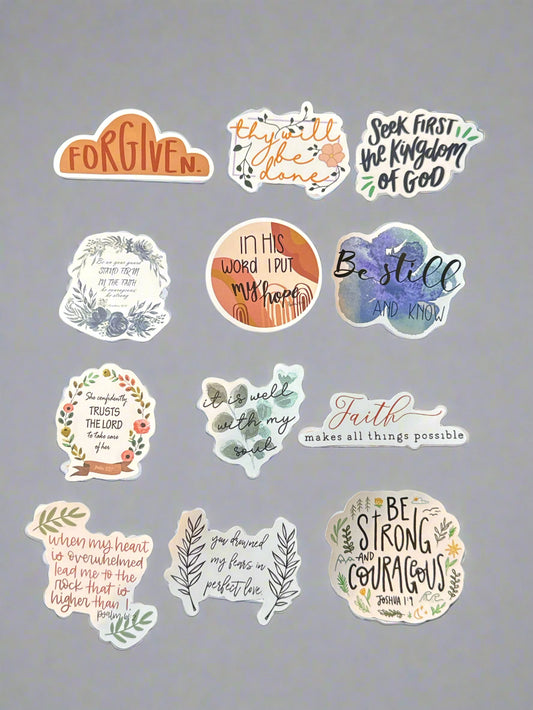 FORGIVEN.
thy will
be
done
SEEK FIRST
the KINGDOM
OF GOD
Be on your guard
STAND FIRM
IN THE FAITH
be courageous
be strong
IN HIS
WORD I PUT
MY hope
Be still
AND KNOW
She confidently
TRUSTS
THE LORD
to take care
of her
it is well
with my
soul
Faith
makes all things possible
when my heart
is overwhelmed
lead me to the
rock that is
higher than I.
you drowned
my fears in
perfect love
BE
STRONG
AND
COURAGEOUS
JOSHUA 1:9